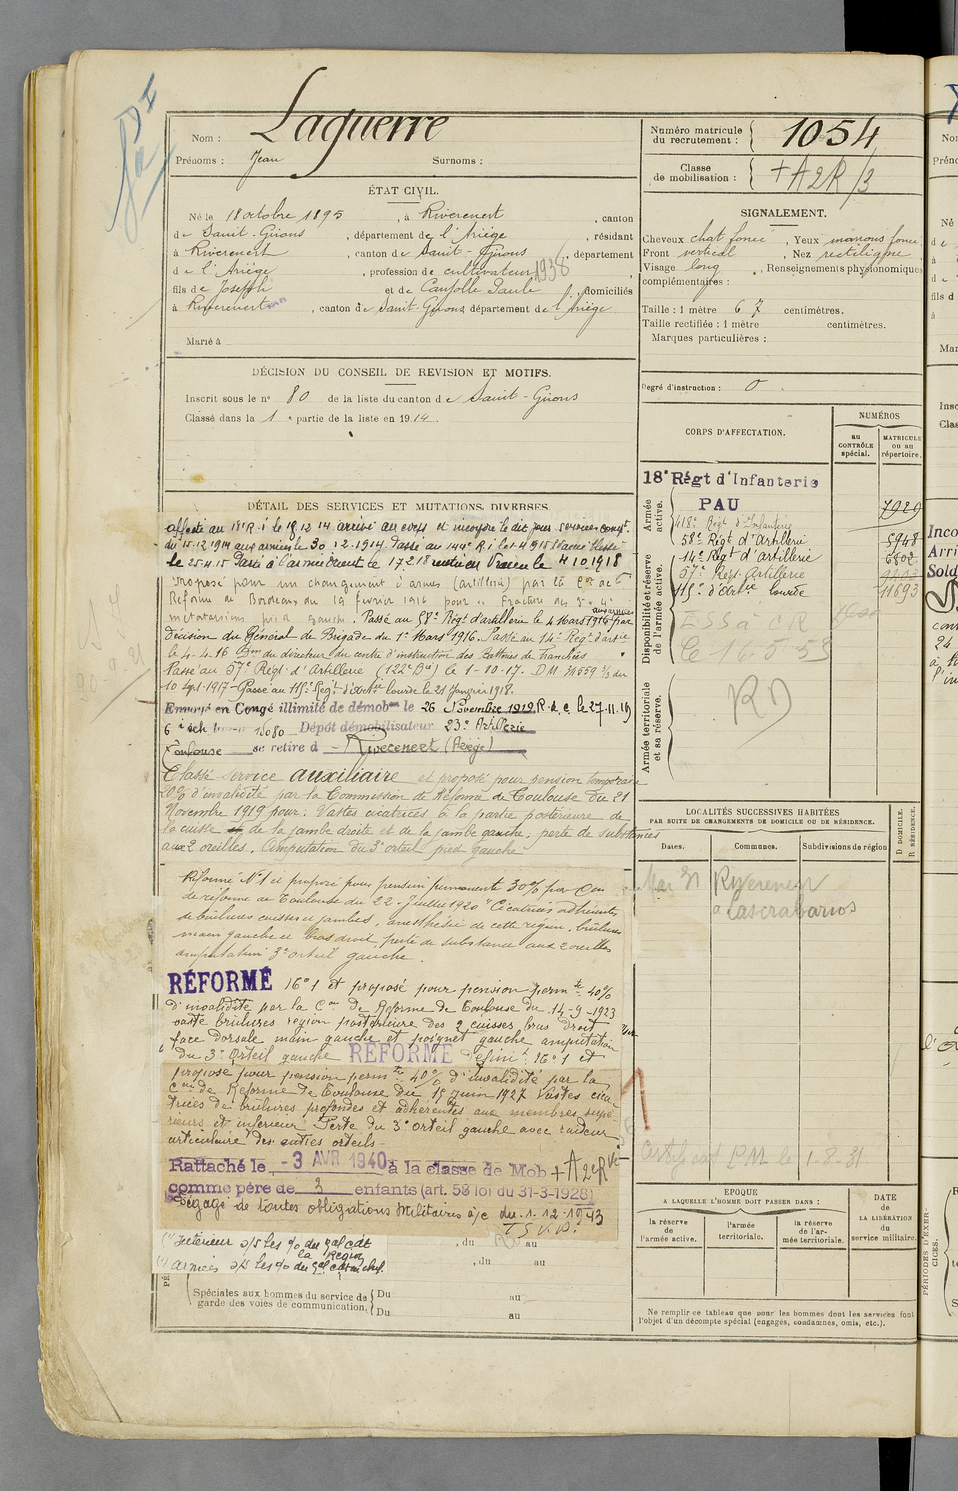 Nom : Laguerre
Prénoms : Jean Surnoms :
ÉTAT CIVIL.
Né le 18 octobre 1895, à Riverenert, canton
de Saint-Girons, département de l'Ariège, résidant
à Riverenert, canton de Saint-Girons, département
de l'Ariège, profession de cultivateur 1938
fils de Joseph et de Caujolle Paule, domiciliés
à Riverenert, canton de Saint-Girons, département de l'Ariège
Marié à
DÉCISION DU CONSEIL DE REVISION ET MOTIFS.
Inscrit sous le n° 80 de la liste du canton de Saint-Girons
Classé dans la 1e partie de la liste en 1914.
DÉTAIL DES SERVICES ET MUTATIONS DIVERSES.
Affecté au 18e R.i le 18.12.14 arrivé au corps et incorporé le dit jour. Services compt.
du 15.12.1914 aux armées le 30.12.1914. Passé au 144e R.i le 1.4.1915 blessé
le 25.4.15 Passé à l'armée le 17.2.18 le 4.10.1918
Proposé pour un changement d'armes (artillerie) par la Con de
Réforme de Bordeaux du 19 février 1916 pour : Fracture des 3e 4e
métatarsiens pied gauche. Passé au 58e Régt d'artillerie le 4 Mars 1916 par
décision du Général de Brigade du 1er Mars 1916. Passé au 14e Régt d'artie
le 4-4-16 du directeur du centre d'instruction des Batteries de Tranchées
Passé au 57e Régt d'Artillerie (122e Bie) le 1-10-17. DM 74559 3/3 du
10 Sept. 1917 - Passé au 115e Régt d'Artie lourde le 21 Janvier 1918.
Envoyé en Congé illimité de démobon le 26 Novembre 1919 R.d.c. le 27.11.19
6e éch 15080 Dépôt démobilisateur 23e Artillerie
Toulouse se retire à Riverenert (Ariège)
Classé service auxiliaire et proposé pour pension temporaire
20% d'invalidité par la Commission de Réforme de Toulouse du 21
Novembre 1919 pour : Vastes cicatrices à la partie postérieure de
la cuisse et de la jambe droite et de la jambe gauche, perte de substances
aux 2 oreilles. Amputation du 3e orteil pied gauche
Réformé N°1 et proposé pour pension permanente 30% par Con
de réforme de Toulouse du 22 Juillet 1920 "Cicatrices adhérentes
de brûlures cuisses et jambes, anesthésie de cette région, brûlures
main gauche et bras droit, perte de substance aux 2 oreilles
amputation 3e orteil gauche.
RÉFORMÉ N°1 et proposé pour pension permte 40%
d'invalidité par la Con de Réforme de Toulouse du 14-9-1923
vaste brûlures région postérieure des 2 cuisses, bras droit
face dorsale main gauche et poignet gauche amputation
du 3e orteil gauche RÉFORMÉ Défini N°1 et
proposé pour pension permte 40% d'invalidité par la
Con de Réforme de Toulouse du 15 Juin 1927 Vastes cica
trices de brûlures profondes et adhérentes aux membres supé
rieurs et inférieur Perte du 3e orteil gauche avec raideur
articulaire des autres orteils
Rattaché le - 3 AVR 1940 à la classe de Mob + A2eR
comme père de 2 enfants (art. 58 loi du 31-3-1928)
Dégagé de toutes obligations Militaires a/c du 1-12-1943
T.S.V.P.
(1) Intérieur s/s les o/o du gal cdt
la Région
(2) Armées s/s les o/o du gal cdt en chef
, du au
, du au
Spéciales aux hommes du service de garde des voies de communication. Du au
Du au
Numéro matricule du recrutement : 1054
Classe de mobilisation : + A2R/3
SIGNALEMENT.
Cheveux chat foncé, Yeux marrons foncé
Front vertical, Nez rectiligne
Visage long, Renseignements physionomiques
complémentaires :
Taille : 1 mètre 67 centimètres.
Taille rectifiée : 1 mètre centimètres.
Marques particulières :
Degré d'instruction : 0
CORPS D'AFFECTATION.
NUMÉROS
au CONTRÔLE spécial.
MATRICULE ou au répertoire.
Armée active.
18e Régt d'Infanterie
PAU 7929
Disponibilité et réserve de l'armée active.
58e Régt d'Artillerie 5948
14e Régt d'artillerie 6802
57e Régt Artillerie
115e d'Artie lourde 11693
Le 16-5-53
Armée territoriale et sa réserve.
RD
LOCALITÉS SUCCESSIVES HABITÉES
PAR SUITE DE CHANGEMENTS DE DOMICILE OU DE RÉSIDENCE.
D DOMICILE.
R RÉSIDENCE.
Dates. Communes. Subdivisions de région
Mar 31 Riverenert
à Lascrabarios
1-8-31
EPOQUE
A LAQUELLE L'HOMME DOIT PASSER DANS :
la réserve de l'armée active.
l'armée territoriale.
la réserve de l'armée territoriale.
DATE de LA LIBÉRATION du service militaire.
Ne remplir ce tableau que pour les hommes dont les services font
l'objet d'un décompte spécial (engagés, condamnés, omis, etc.).
PÉRIODES D'EXERCICES.